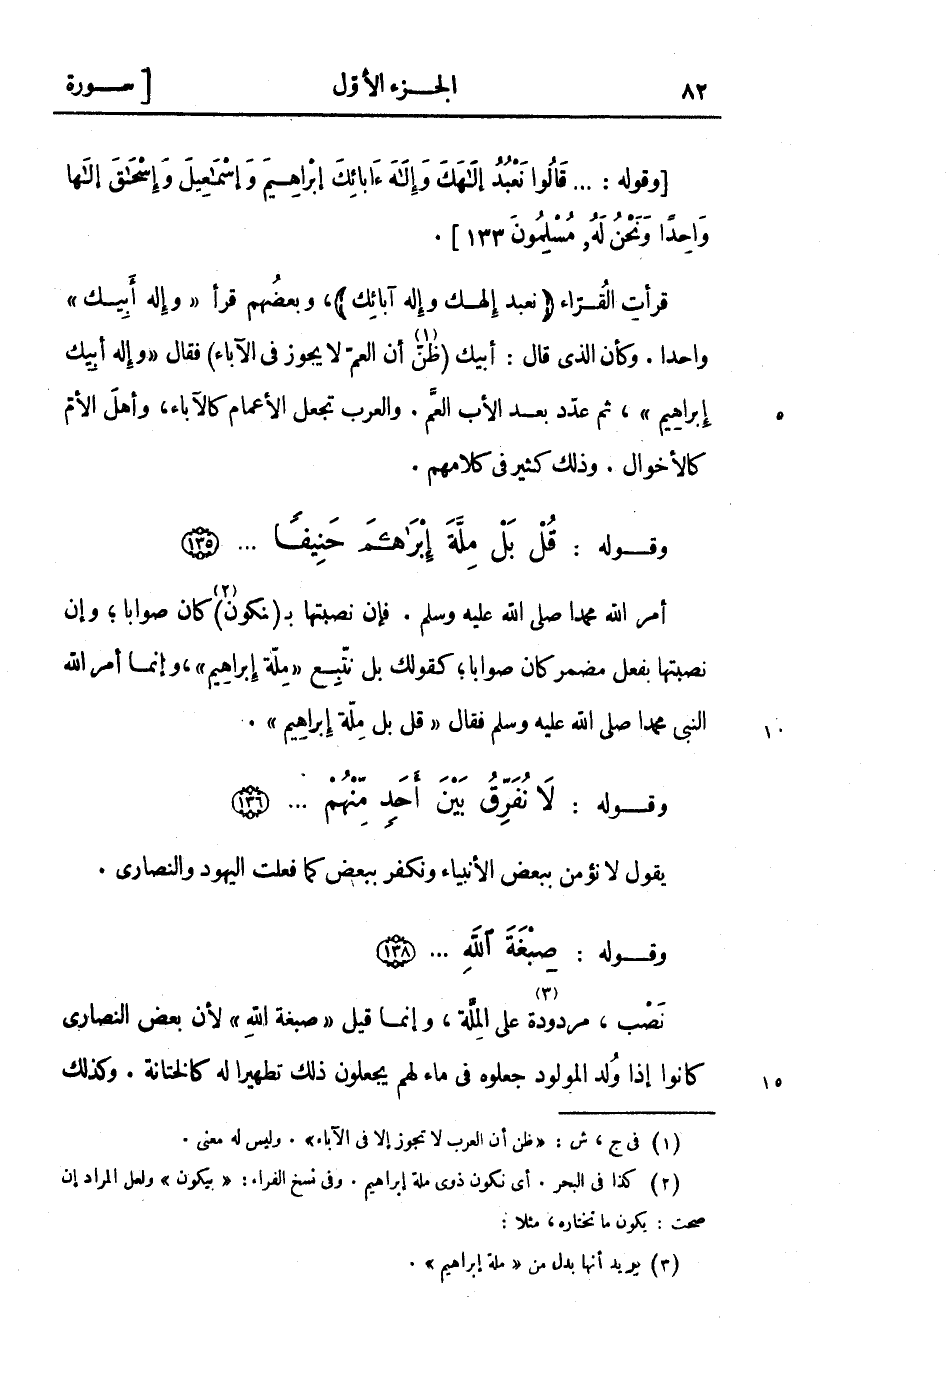 ٨٢ الجزء الأول [ سورة
[وقوله : ... قَالُوا نَعْبُدُ إِلَٰهَكَ وَإِلَٰهَ ءَابَائِكَ إِبْرَاهِيمَ وَإِسْمَٰعِيلَ وَإِسْحَٰقَ إِلَٰهًا
وَاحِدًا وَنَحْنُ لَهُۥ مُسْلِمُونَ ١٣٣] .
قرأت القُرّاء ﴿نعبد إلهك وإله آبائك﴾، وبعضُهم قرأ « وإله أَبِيك »
واحدا . وكأن الذى قال : أبيك (ظنّ (١) أن العمّ لا يجوز فى الآباء) فقال «وإله أبِيك
إبراهيم » ، ثم عدّد بعد الأب العمَّ . والعرب تجعل الأعمام كالآباء، وأهلَ الأم ٥
كالأخوال . وذلك كثير فى كلامهم .
وقوله : قُلْ بَلْ مِلَّةَ إِبْرَاهِـۧمَ حَنِيفًا ... ١٣٥
أمر الله محمدا صلى الله عليه وسلم . فإن نصبتها بـ(نكون) (٢) كان صوابا؛ وإن
نصبتها بفعل مضمر كان صوابا؛ كقولك بل نتّبِع «مِلّة إبراهيم»، وإنما أمر الله
النبى محمدا صلى الله عليه وسلم فقال « قل بل مِلّة إبراهيم » . ١٠
وقوله : لَا نُفَرِّقُ بَيْنَ أَحَدٍ مِّنْهُمْ ... ١٣٦
يقول لا نؤمن ببعض الأنبياء ونكفر ببعض كما فعلت اليهود والنصارى .
وقوله : صِبْغَةَ ٱللَّهِ ... ١٣٨
نَصْب ، مردودة (٣) على المِلَّة ، وإنما قيل « صبغة اللهِ » لأن بعض النصارى
كانوا إذا وُلد المولود جعلوه فى ماء لهم يجعلون ذلك تطهيرا له كالختانة . وكذلك ١٥
(١) فى ج ، ش : «ظن أن العرب لا تجوز إلا فى الآباء» . وليس له معنى .
(٢) كذا فى البحر . أى نكون ذوى ملة إبراهيم . وفى نسخ الفراء : « بيكون » ولعل المراد إن
صحت : يكون ما تختاره، مثلا :
(٣) يريد أنها بدل من « ملة إبراهيم » .